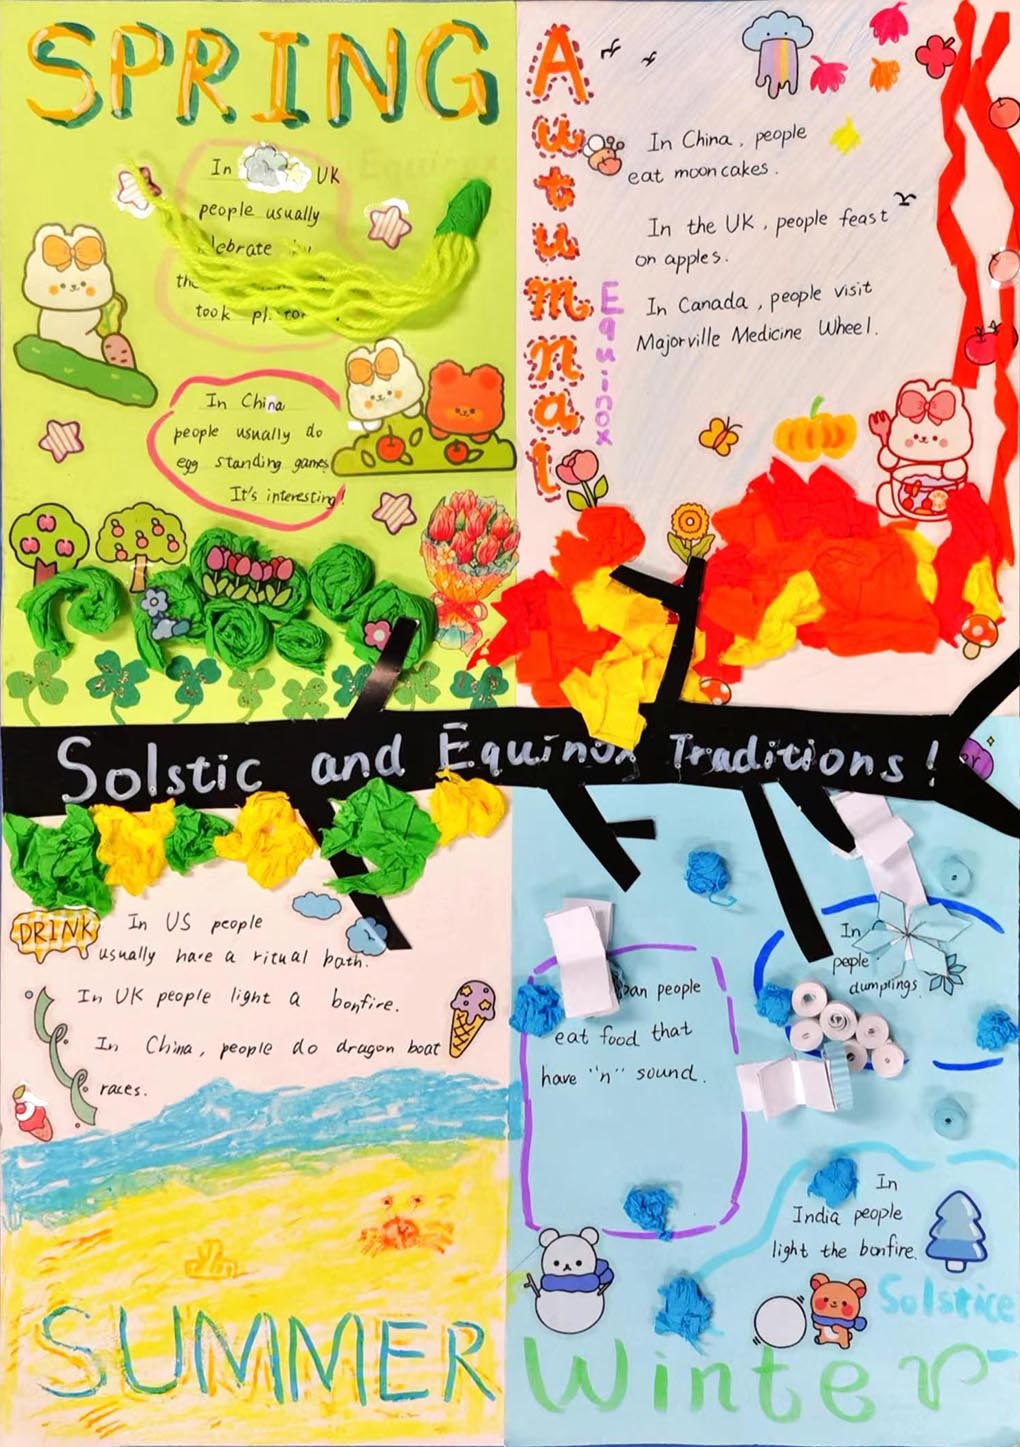 SPRING
In UK
people usually
took
In China
people usually do
egg standing games
It's interesting!
Autumnal
Equinox
In China, people
eat mooncakes.
In the UK, people feast
on apples.
In Canada, people visit
Majorville Medicine Wheel.
Solstic and Equinox Traditions!
DRINK
In US people
usually have a ritual bath.
In UK people light a bonfire.
In China, people do dragon boat
races.
SUMMER
people
eat food that
have "n" sound.
In
people
dumplings.
In
India people
light the bonfire.
Solstice
Winter